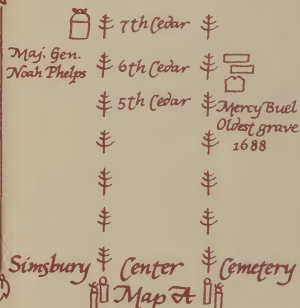 7th Cedar
Maj. Gen.
Noah Phelps
6th Cedar
5th Cedar
Mercy Buel
Oldest grave
1688
Simsbury Center Cemetery
Map A